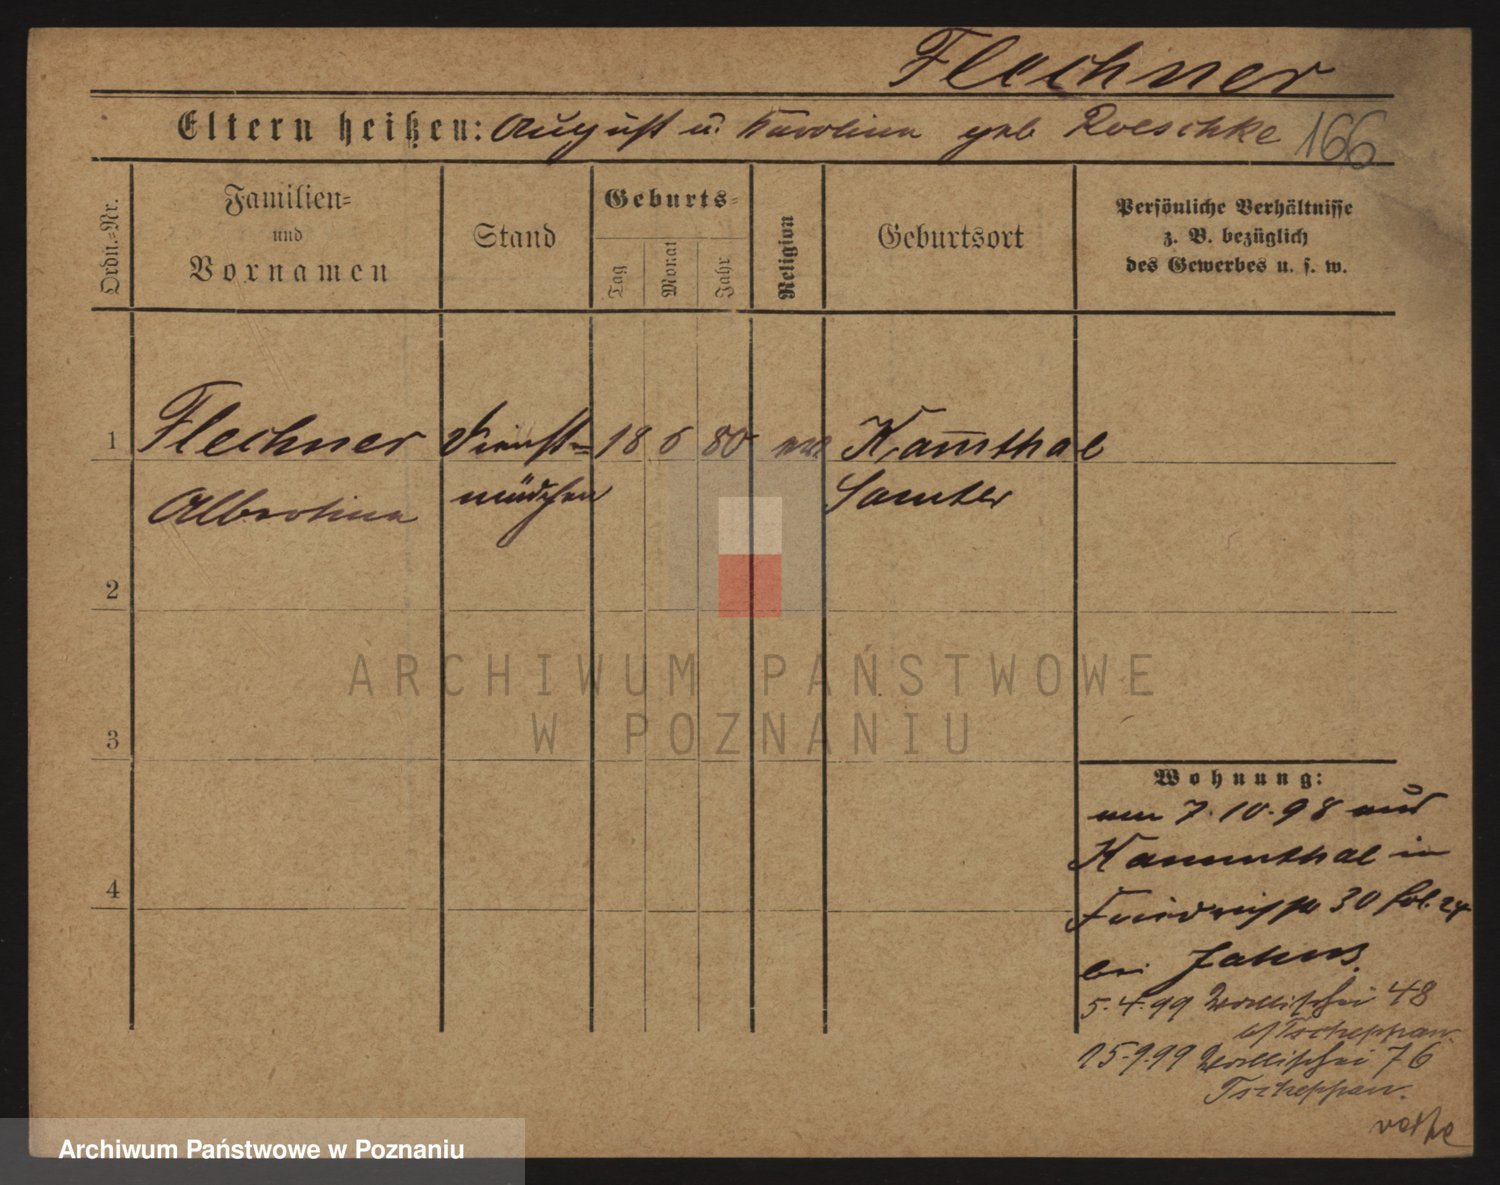 Flechner
Eltern heißen: August u. Karolina geb Roeschke 166
Ordn.-Nr.
Familien-
und
Vornamen
Stand
Geburts-
Tag
Monat
Jahr
Religion
Geburtsort
Persönliche Verhältnisse
z. B. bezüglich
des Gewerbes u. s. w.
1 Flechner Dienst= 18 6 80 ev Kam̅thal
Albertina mädchen Samter
2
3
4
Wohnung:
am 7.10.98 aus
Kammthal in
30 fol. 24
bei
5.4.99 Wallischei 48
b/ Tscheppan.
15.9.99 Wallischei 76
Tscheppan.
ARCHIWUM PAŃSTWOWE
W POZNANIU
Archiwum Państwowe w Poznaniu